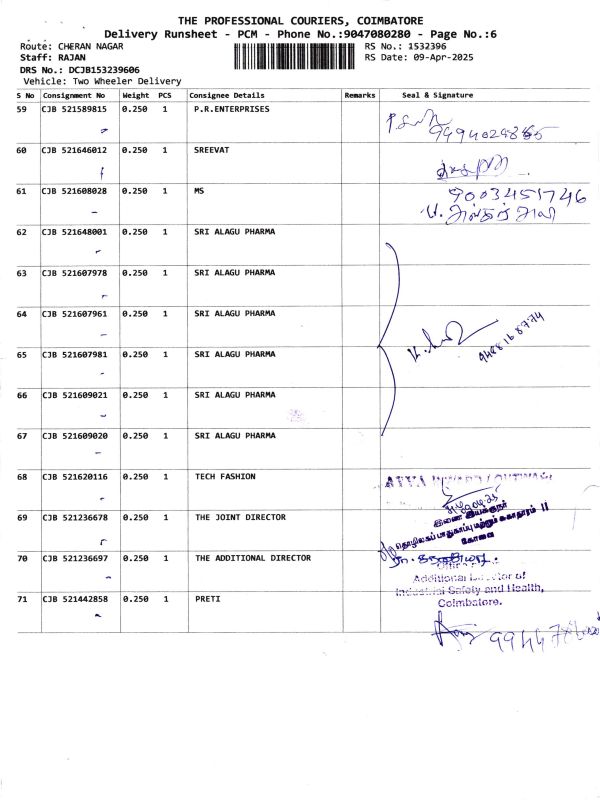 THE PROFESSIONAL COURIERS, COIMBATORE
Delivery Runsheet - PCM - Phone No.:9047080280 - Page No.:6
Route: CHERAN NAGAR
RS No.: 1532396
Staff: RAJAN
RS Date: 09-Apr-2025
DRS No.: DCJB153239606
Vehicle: Two Wheeler Delivery
S No Consignment No Weight PCS Consignee Details Remarks Seal & Signature
59 CJB 521589815 0.250 1 P.R.ENTERPRISES
60 CJB 521646012 0.250 1 SREEVAT
61 CJB 521608028 0.250 1 MS 9003451746
62 CJB 521648001 0.250 1 SRI ALAGU PHARMA
63 CJB 521607978 0.250 1 SRI ALAGU PHARMA
64 CJB 521607961 0.250 1 SRI ALAGU PHARMA
65 CJB 521607981 0.250 1 SRI ALAGU PHARMA
66 CJB 521609021 0.250 1 SRI ALAGU PHARMA
67 CJB 521609020 0.250 1 SRI ALAGU PHARMA
68 CJB 521620116 0.250 1 TECH FASHION
69 CJB 521236678 0.250 1 THE JOINT DIRECTOR
இணை இயக்குநர்
தொழிலகப் பாதுகாப்பு மற்றும் சுகாதாரம் II
கோவை
70 CJB 521236697 0.250 1 THE ADDITIONAL DIRECTOR
Additional Director of
Industrial Safety and Health,
Coimbatore.
71 CJB 521442858 0.250 1 PRETI